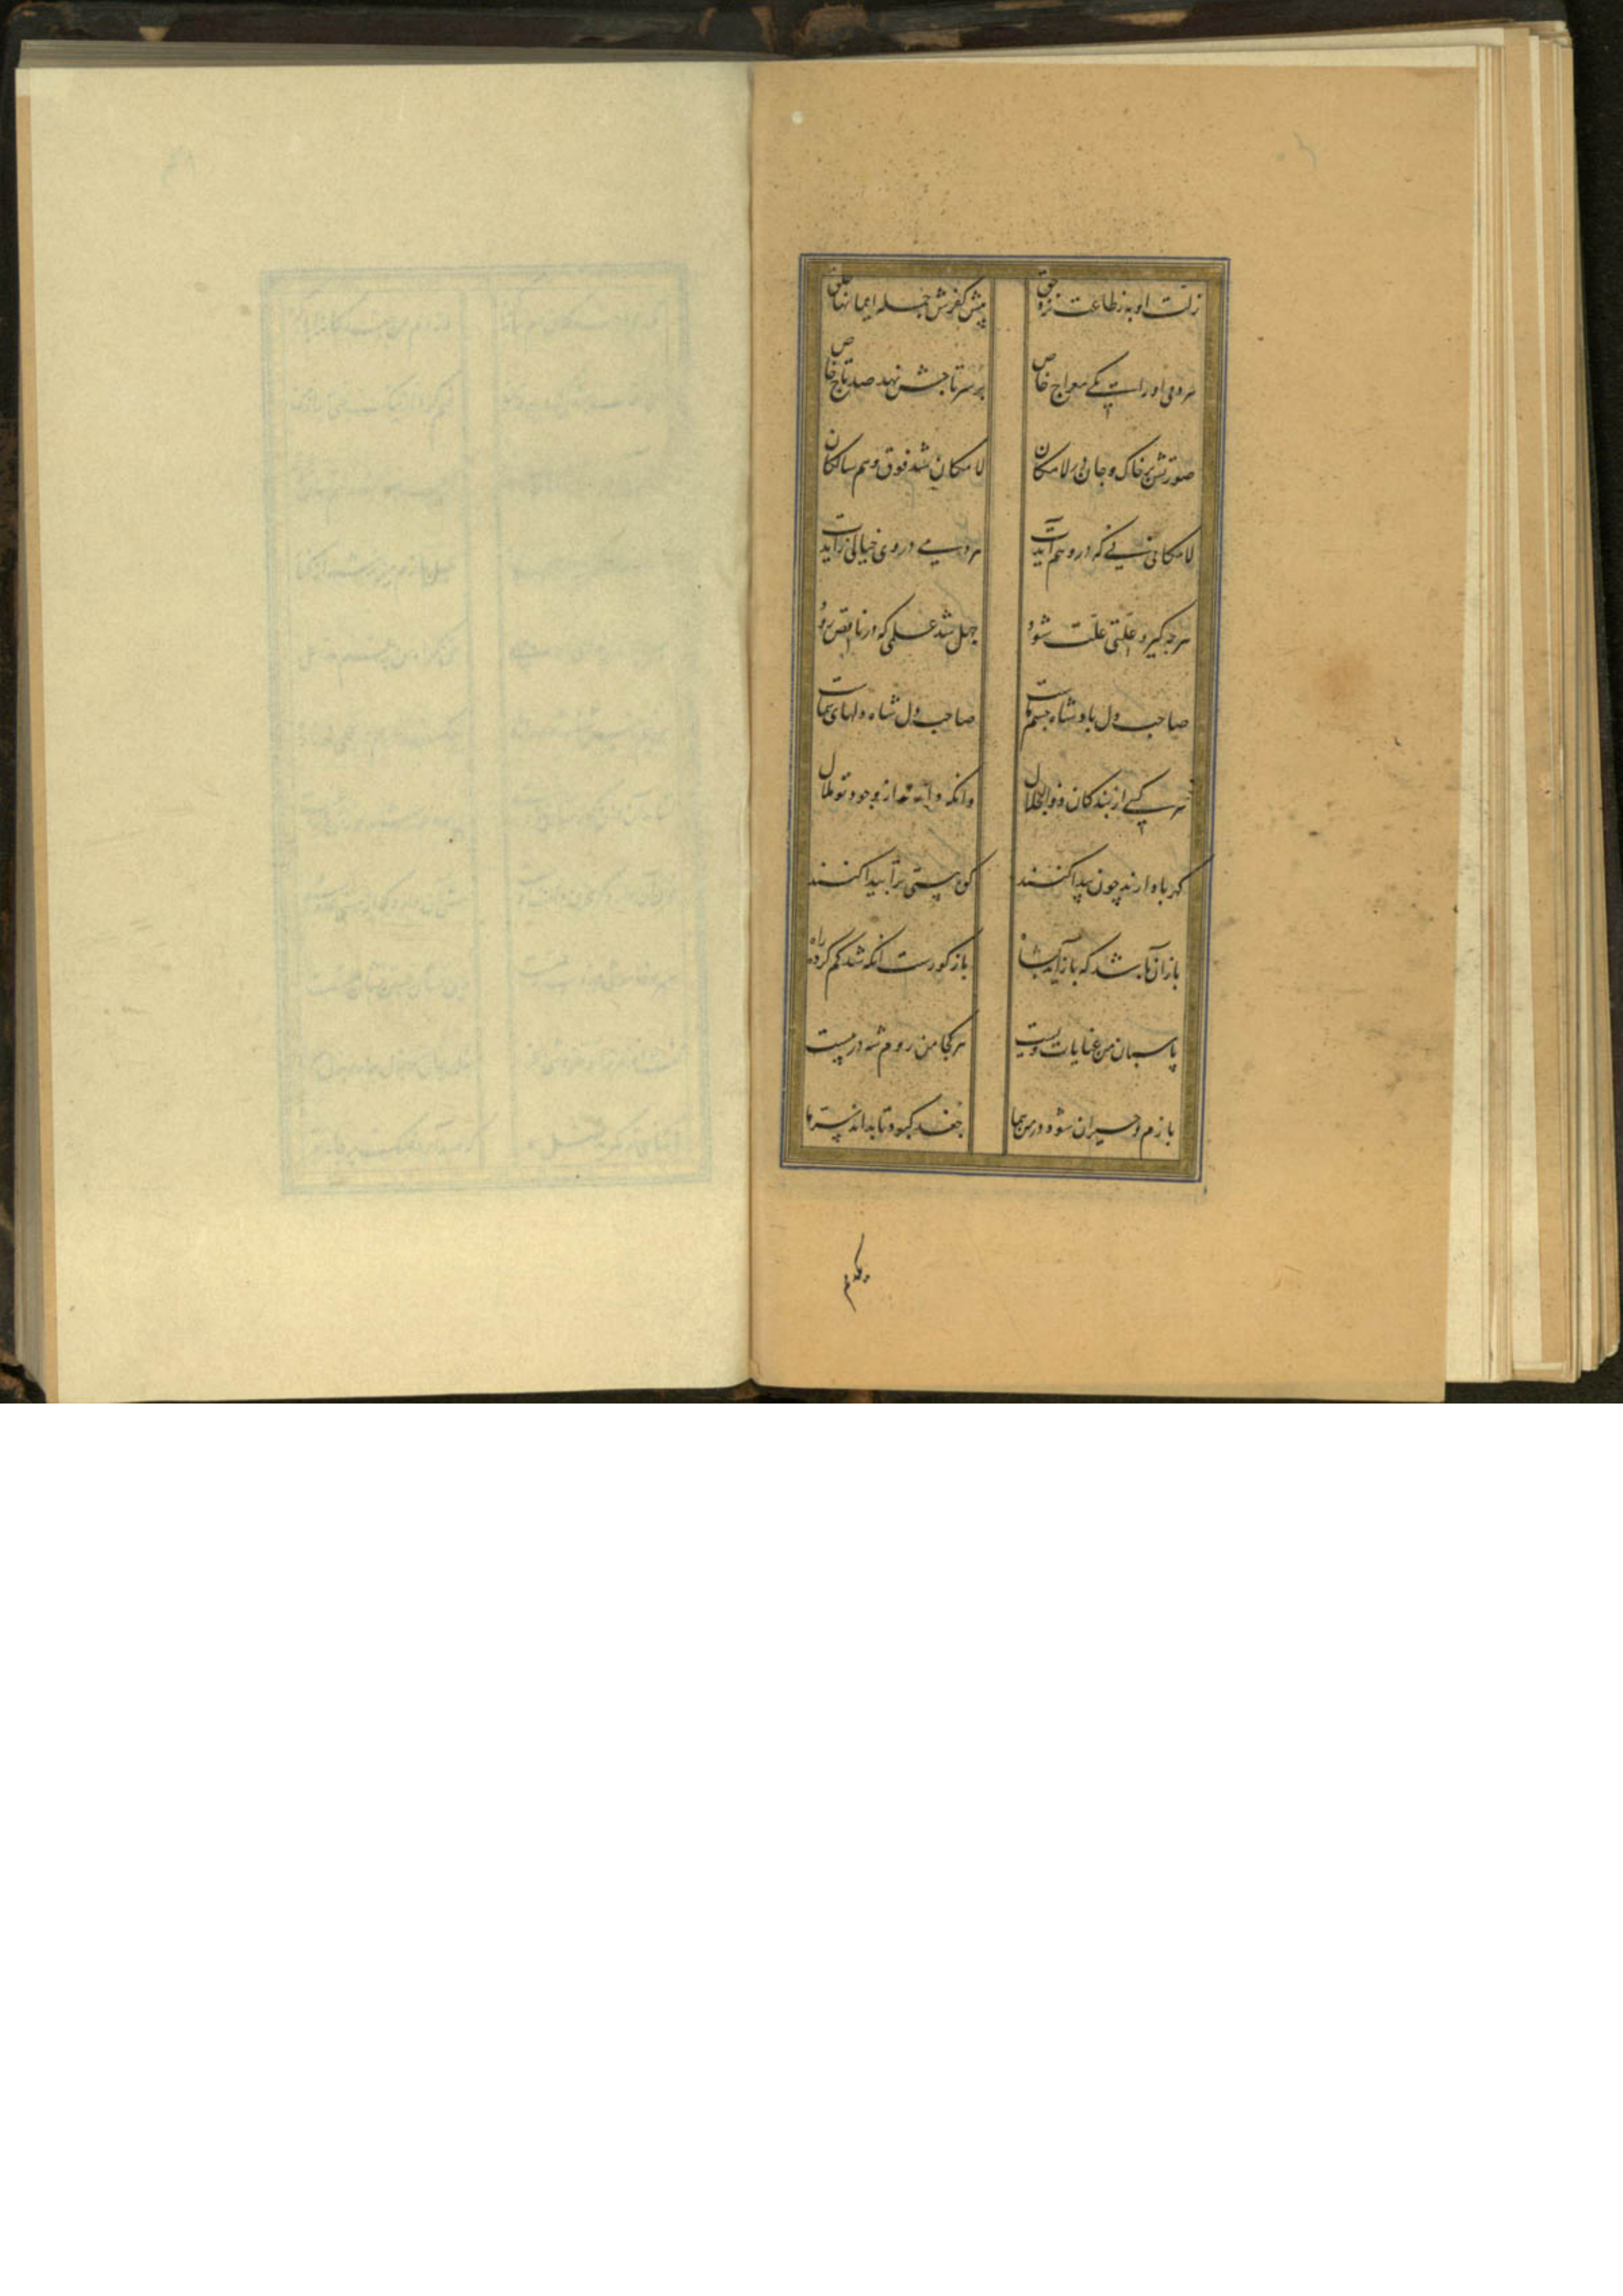 زلت او به ز طاعت نزد حق پیش کفرش جمله ایمانها خلق
هر دمی او راست یکی معراج خاص بر سر تاجش نهد صد تاج خاص
صورتش بر خاک و جان بر لامکان لامکان شد فوق وهم سالکان
لامکانی نی که در وهم آیدت هر دمی در وی خیالی زایدت
هرجه کیرد علتی علت شود جهل شد علمی که در ناقص رود
صاحب دل پادشاه جسم هاست صاحب دل شاه دلهای شماست
سر کشی از بندکان ذوالجلال وانکه دارند از وجود تو ملال
کهربا دارند چون پیدا کنند هستی ترا کنند
باز آن باشد که باز آید بشاه باز کورست انکه شد کم کرده راه
پاسبان من عنایات ویست هر کجا من روم شه در پیست
بازم و حیران شود در من هما جغد کبود تا بداند سر ما